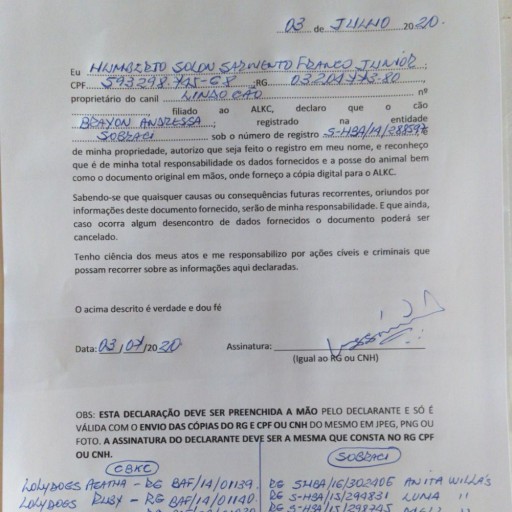 03 de JULHO 2020.
Eu HUMBERTO SOLON SARMENTO FRANCO JUNIOR;
CPF 593298745-68 ;RG 03204773-80,
proprietário do canil LINDO CÃO nº
, filiado ao ALKC, declaro que o cão
BRAYON ANDRESSA, registrado na entidade
SOBRACI sob o número de registro S-HBA/14/288597
de minha propriedade, autorizo que seja feito o registro em meu nome, e reconheço
que é de minha total responsabilidade os dados fornecidos e a posse do animal bem
como o documento original em mãos, onde forneço a cópia digital para o ALKC.
Sabendo-se que quaisquer causas ou consequências futuras recorrentes, oriundos por
informações deste documento fornecido, serão de minha responsabilidade. E que ainda,
caso ocorra algum desencontro de dados fornecidos o documento poderá ser
cancelado.
Tenho ciência dos meus atos e me responsabilizo por ações cíveis e criminais que
possam recorrer sobre as informações aqui declaradas.
O acima descrito é verdade e dou fé
Data: 03/07/2020 Assinatura:
(Igual ao RG ou CNH)
OBS: ESTA DECLARAÇÃO DEVE SER PREENCHIDA A MÃO PELO DECLARANTE E SÓ É
VÁLIDA COM O ENVIO DAS CÓPIAS DO RG E CPF OU CNH DO MESMO EM JPEG, PNG OU
FOTO. A ASSINATURA DO DECLARANTE DEVE SER A MESMA QUE CONSTA NO RG CPF
OU CNH.
CBKC SOBRACI
LOLYDOGS AGATHA - RG BAF/14/01139. RG SHBA/16/302405 ANITA WILLA'S
LOLYDOGS RUBY - RG BAF/14/01140. RG S-HBA/15/294831 LUNA "
RG S-HBA/15/298745